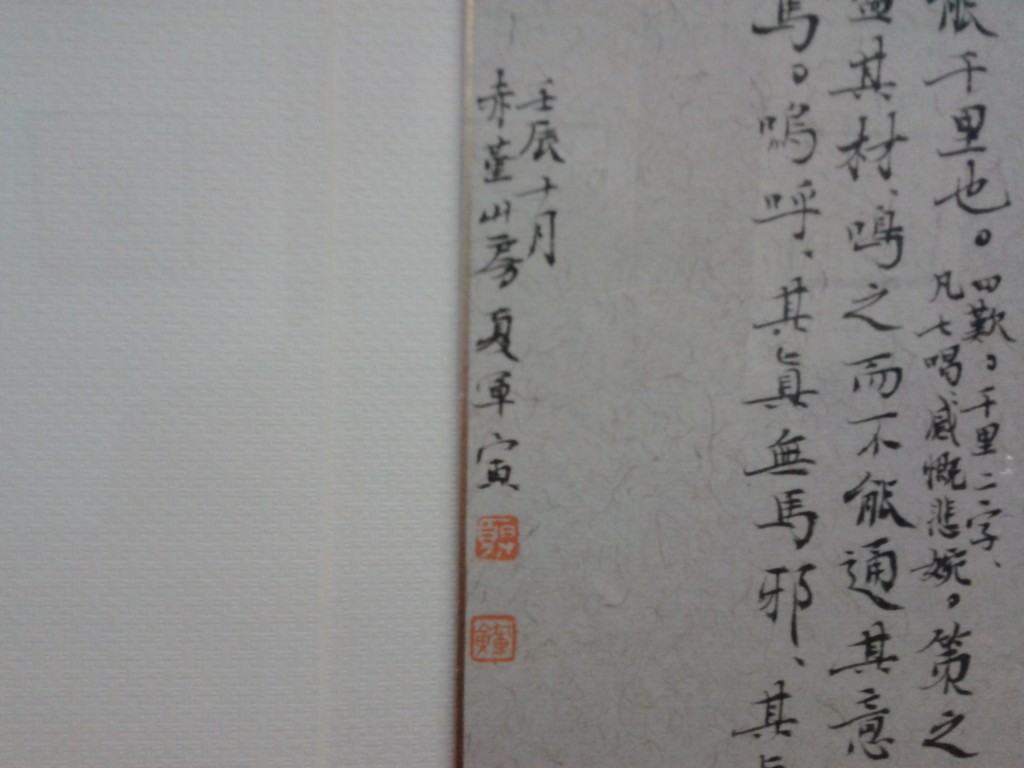 能千里也。
四歎。千里二字、
凡七唱、感慨悲婉。
策之
盡其材、鳴之而不能通其意
馬。嗚呼、其真無馬邪、其
壬辰十月
赤堇山房夏軍寅